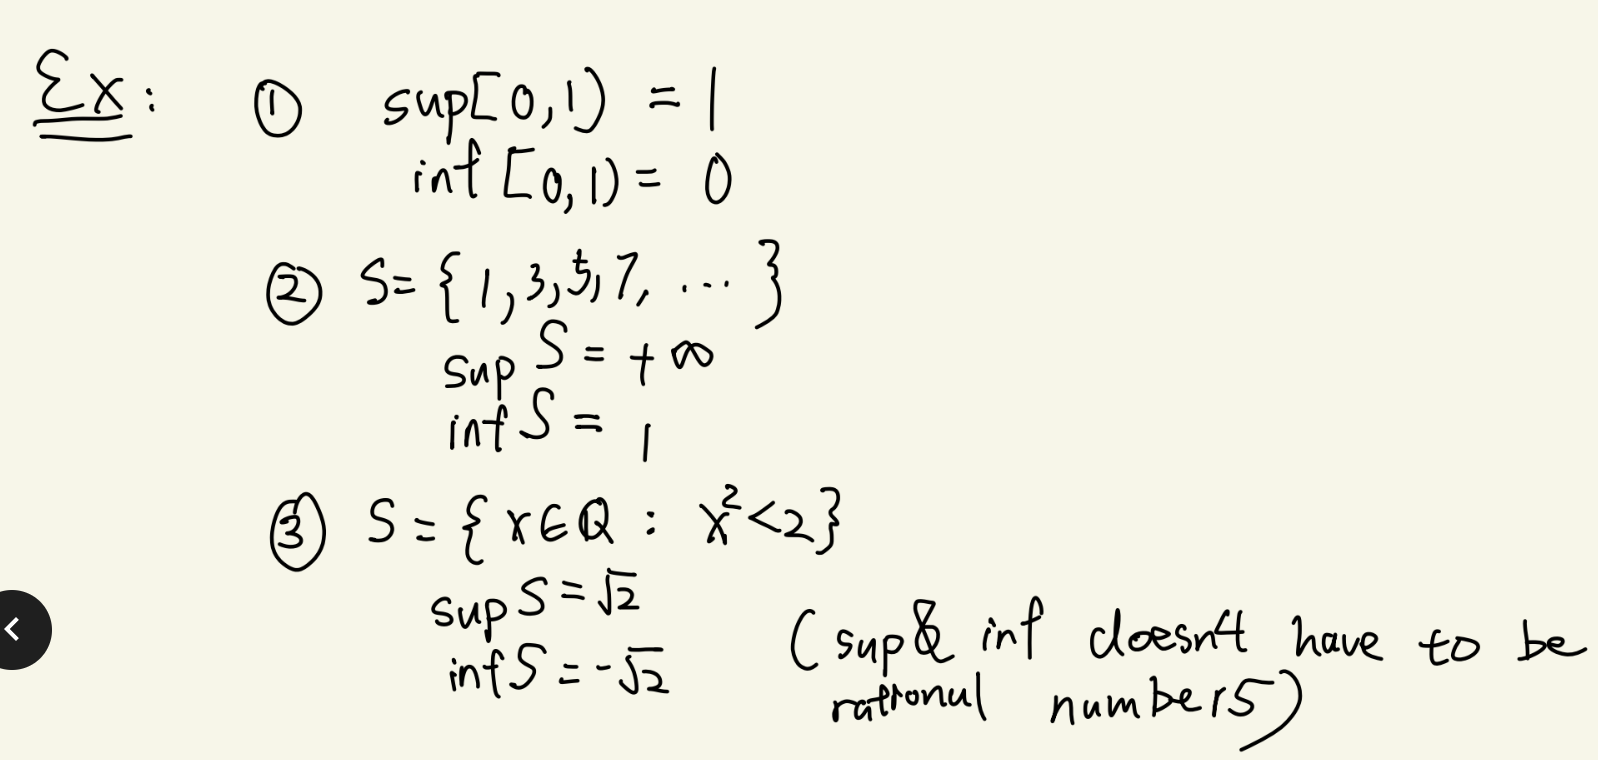 Ex: ① sup[0,1) = 1
inf [0,1) = 0
② S= {1,3,5,7, ... }
sup S = +∞
inf S = 1
③ S = { x∈Q : x²<2}
sup S = √2
inf S = -√2
(sup & inf doesn't have to be
rational numbers)